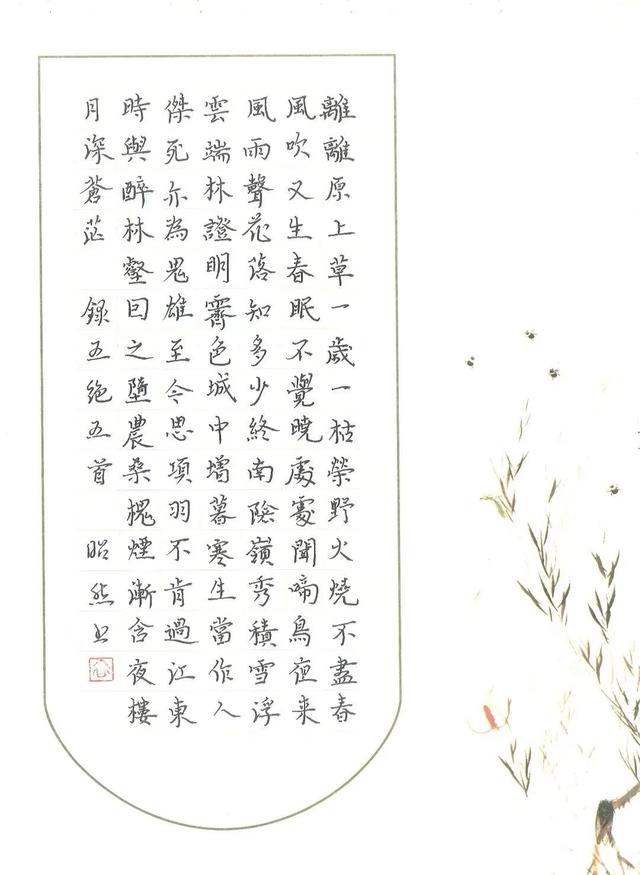 離離原上草一歲一枯榮野火燒不盡春
風吹又生春眠不覺曉處處聞啼鳥夜来
風雨聲花落知多少終南陰嶺秀積雪浮
雲端林證明霽色城中增暮寒生當作人
傑死亦為鬼雄至今思項羽不肯過江東
時與醉林壑囙之墮農桑槐煙漸含夜樓
月深蒼茫 錄五絕五首 昭然书